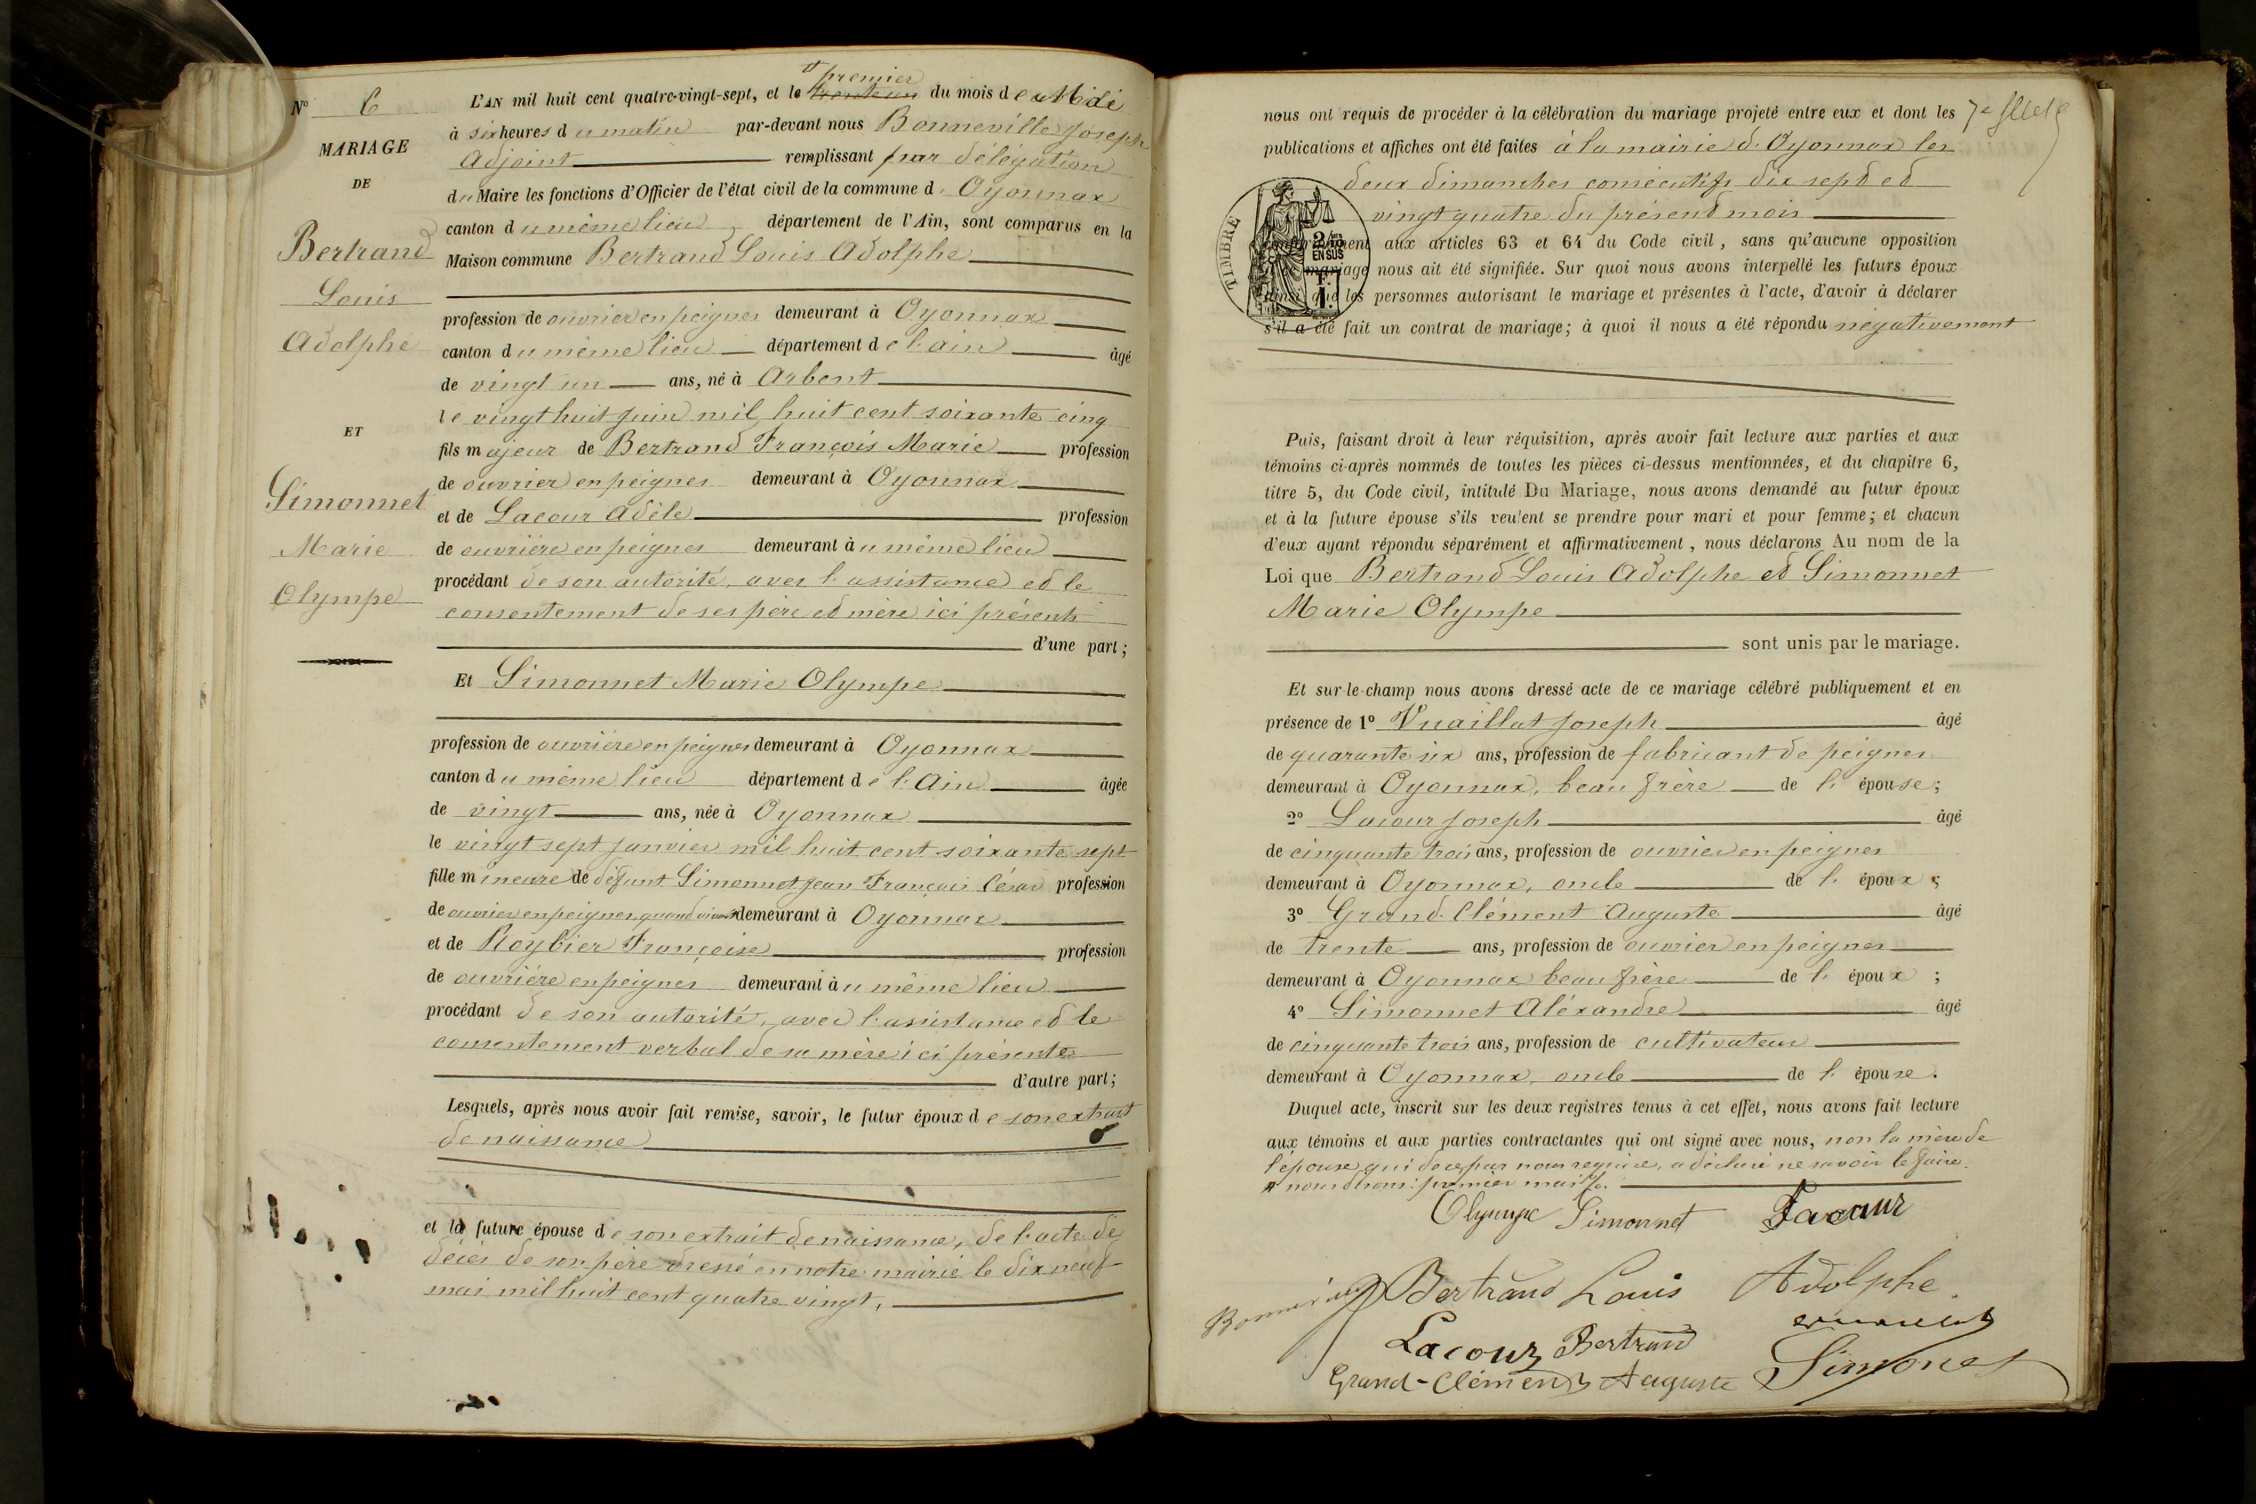 N° 6
MARIAGE
DE
Bertrand
Louis
Adolphe
ET
Simonnet
Marie
Olympe
premier
L'AN mil huit cent quatre-vingt-sept, et le du mois de Mai
à six heures du matin par-devant nous Bonneville Joseph
Adjoint remplissant par délégation
du Maire les fonctions d'Officier de l'état civil de la commune d. Oyonnax
canton du même lieu département de l'Ain, sont comparus en la
Maison commune Bertrand Louis Adolphe
profession de ouvrier en peignes demeurant à Oyonnax
canton du même lieu département de l'ain âgé
de vingt un ans, né à Arbent
le vingt huit juin mil huit cent soixante cinq
fils majeur de Bertrand François Marie profession
de ouvrier en peignes demeurant à Oyonnax
et de Lacour Adèle profession
de ouvrière en peignes demeurant au même lieu
procédant de son autorité, avec l'assistance et le
consentement de ses père et mère ici présents
d'une part;
Et Simonnet Marie Olympe
profession de ouvrière en peignes demeurant à Oyonnax
canton du même lieu département de l'Ain âgée
de vingt ans, née à Oyonnax
le vingt sept janvier mil huit cent soixante sept
fille mineure de défunt Simonnet Jean François César profession
de ouvrier en peignes quand vivait demeurant à Oyonnax
et de Roybier Françoise profession
de ouvrière en peignes demeurant au même lieu
procédant de son autorité, avec l'assistance et le
consentement verbal de sa mère ici présente
d'autre part;
Lesquels, après nous avoir fait remise, savoir, le futur époux de son extrait
de naissance
et la future épouse de son extrait de naissance, de l'acte de
décès de son père dressé en notre mairie le dix neuf
mai mil huit cent quatre vingt,
nous ont requis de procéder à la célébration du mariage projeté entre eux et dont les
publications et affiches ont été faites à la mairie d'Oyonnax les
deux dimanches consécutifs dix sept et
vingt quatre du présent mois
conformément aux articles 63 et 64 du Code civil, sans qu'aucune opposition
mariage nous ait été signifiée. Sur quoi nous avons interpellé les futurs époux
ainsi que les personnes autorisant le mariage et présentes à l'acte, d'avoir à déclarer
s'il a été fait un contrat de mariage; à quoi il nous a été répondu négativement
TIMBRE
2/10es
EN SUS
1F.
Puis, faisant droit à leur réquisition, après avoir fait lecture aux parties et aux
témoins ci-après nommés de toutes les pièces ci-dessus mentionnées, et du chapitre 6,
titre 5, du Code civil, intitulé Du Mariage, nous avons demandé au futur époux
et à la future épouse s'ils veulent se prendre pour mari et pour femme; et chacun
d'eux ayant répondu séparément et affirmativement, nous déclarons Au nom de la
Loi que Bertrand Louis Adolphe et Simonnet
Marie Olympe
sont unis par le mariage.
Et sur-le-champ nous avons dressé acte de ce mariage célébré publiquement et en
présence de 1° Vuaillat Joseph âgé
de quarante six ans, profession de fabricant de peignes
demeurant à Oyonnax, beau frère de l'épouse;
2° Lacour Joseph âgé
de cinquante trois ans, profession de ouvrier en peignes
demeurant à Oyonnax, oncle de l'époux;
3° Grand-Clément Auguste âgé
de trente ans, profession de ouvrier en peignes
demeurant à Oyonnax beau frère de l'époux;
4° Simonnet Aléxandre âgé
de cinquante trois ans, profession de cultivateur
demeurant à Oyonnax, oncle de l'épouse.
Duquel acte, inscrit sur les deux registres tenus à cet effet, nous avons fait lecture
aux témoins et aux parties contractantes qui ont signé avec nous, non la mère de
l'épouse qui de ce par nous requise, a déclaré ne savoir le faire.
nous disons: premier mai
Olympe Simonnet Lacour
Bertrand Louis Adolphe
Lacour Bertrand
Grand-Clément Auguste Simonet